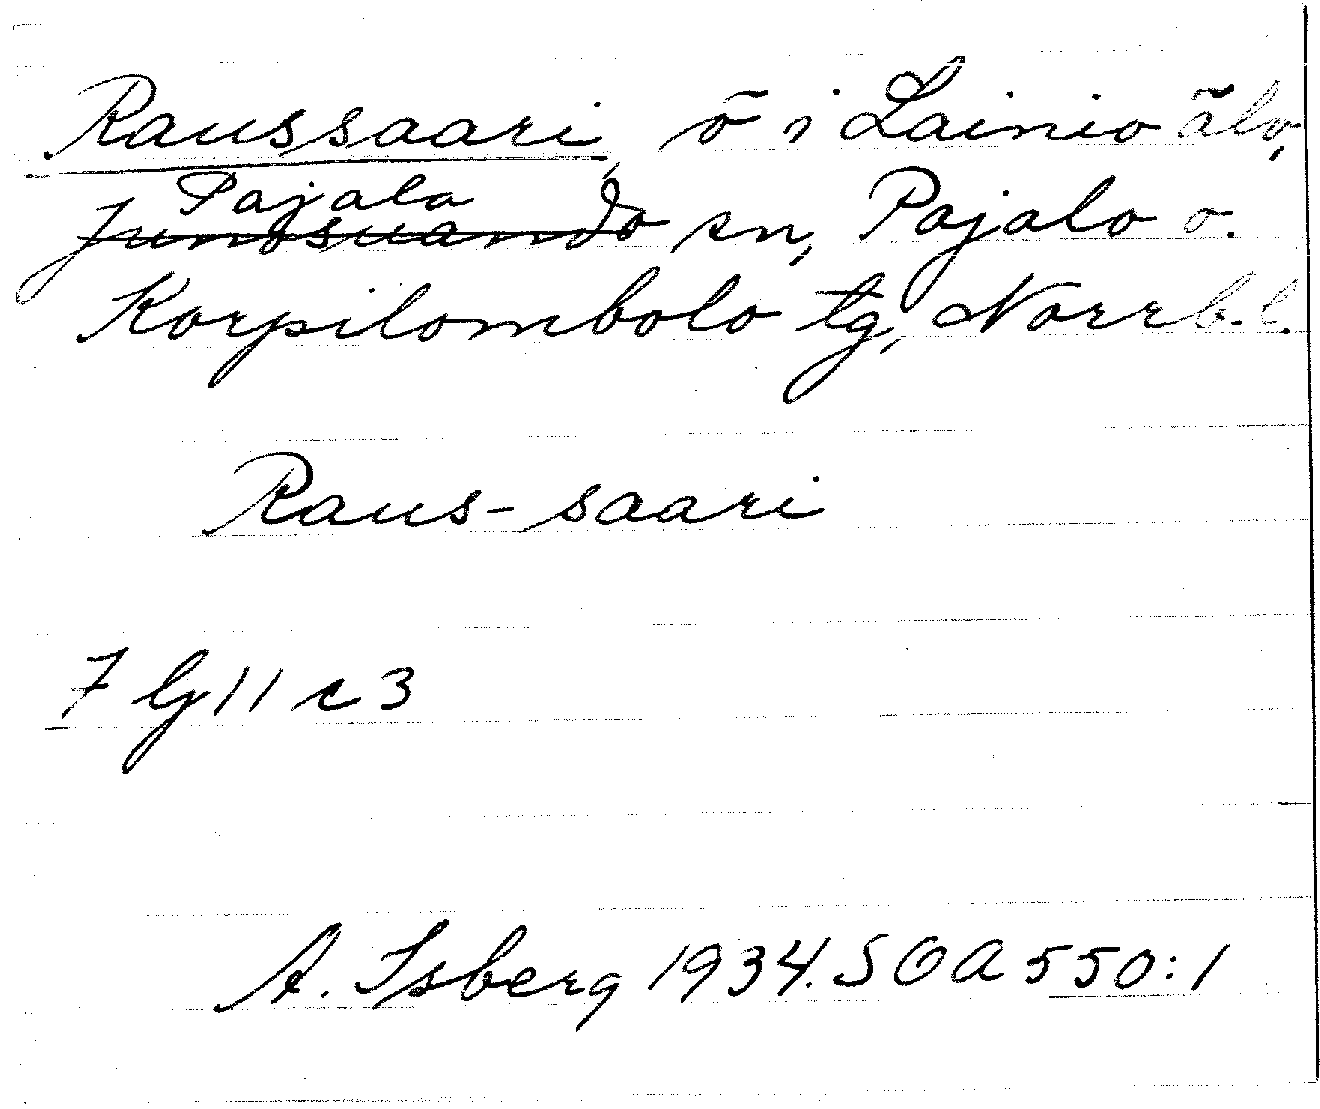 Raussaari, ö i Lainio älv,
Pajala
Junosuando sn, Pajala o.
Korpilombolo tg, Norrb.l.
Raus-saari
7 G 11 c 3
A. Isberg 1934. SOA 550:1